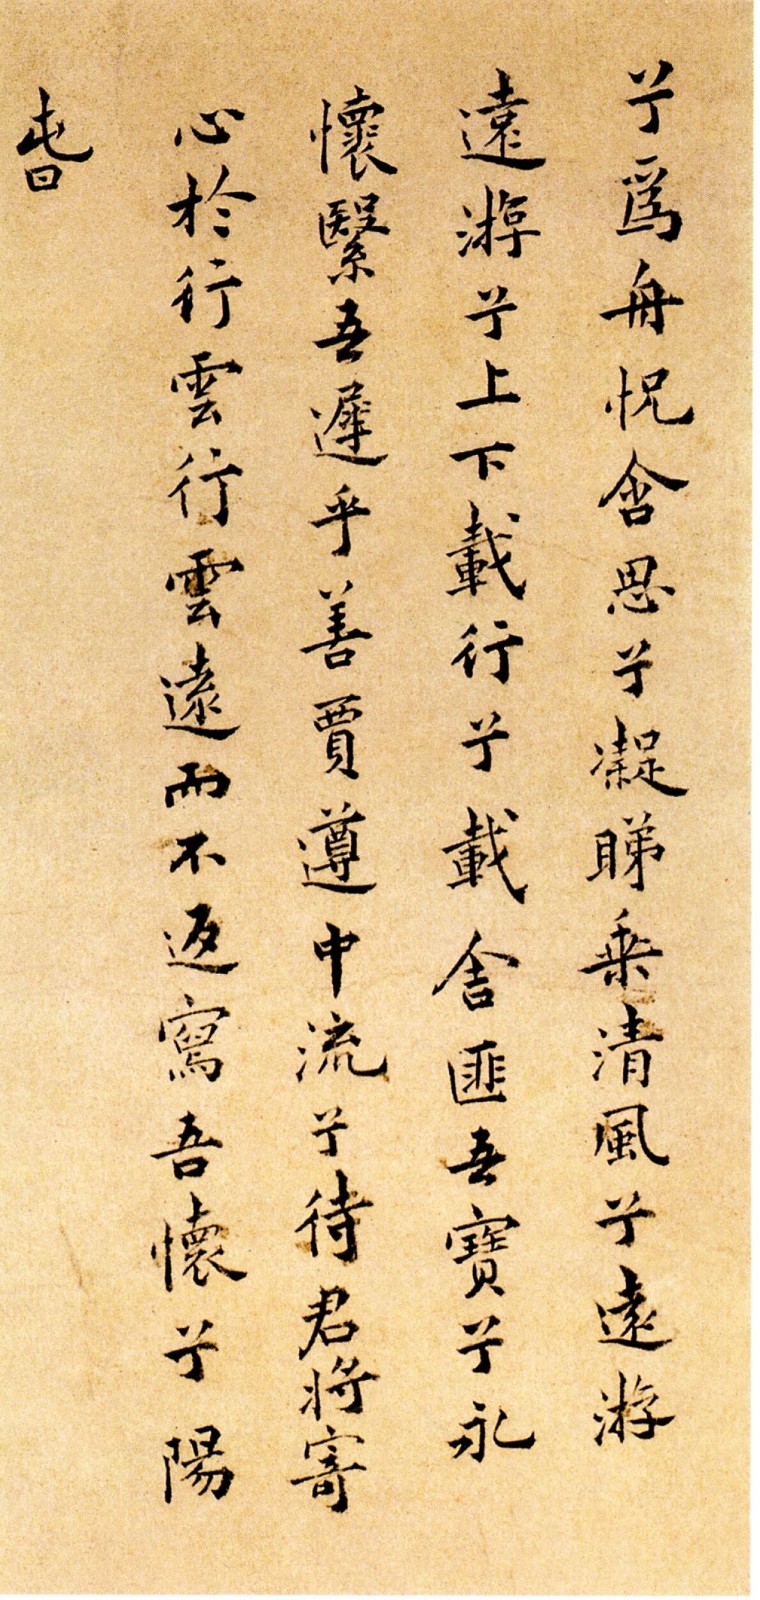 兮爲舟怳含思兮凝睇乗清風兮遠游
遠游兮上下載行兮載舍匪吾寶兮永
懷繄吾遲乎善賈遵中流兮待君將寄
心於行雲行雲遠而不返寫吾懷兮陽
春